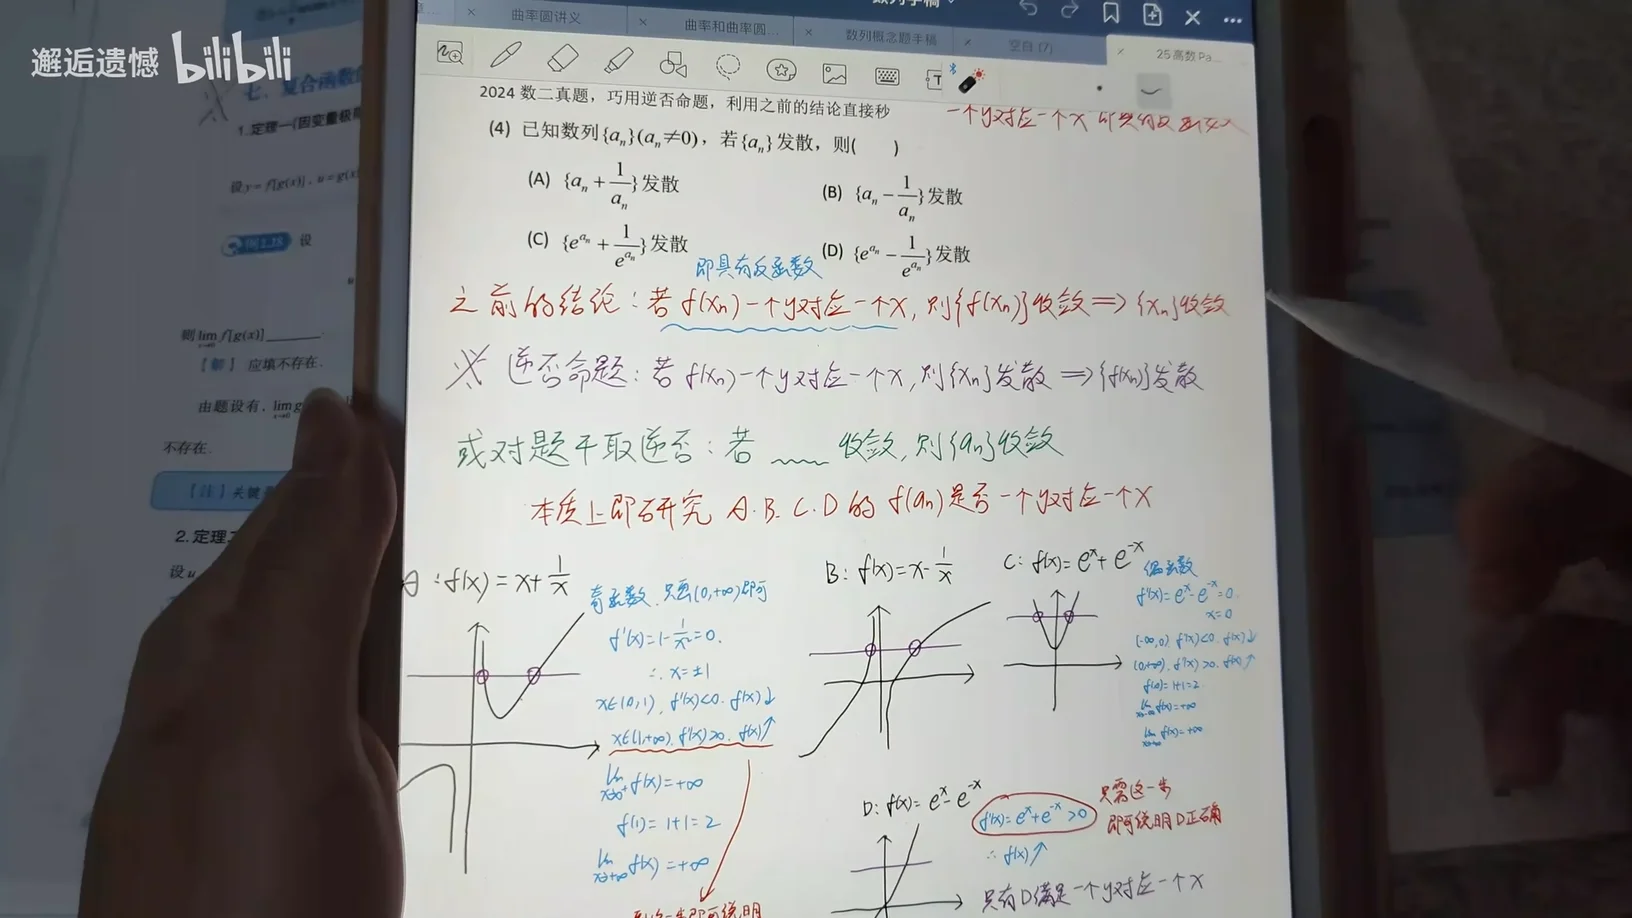 邂逅遗憾 bilibili
曲率圆讲义
曲率和曲率圆...
数列概念题手稿
空白 (7)
25高数Pa...
七、复合函数
1.定理一(因变量极限
设y=f[g(x)], u=g(x)
例2.18 设
则lim f[g(x)]______.
【解】 应填不存在.
由题设有, lim g
不存在.
【注】关键
2.定理二
设u
2024 数二真题，巧用逆否命题，利用之前的结论直接秒
一个y对应一个x
(4) 已知数列{aₙ}(aₙ≠0)，若{aₙ}发散，则( )
(A) {aₙ + 1/aₙ}发散
(B) {aₙ − 1/aₙ}发散
(C) {e^{aₙ} + 1/e^{aₙ}}发散
(D) {e^{aₙ} − 1/e^{aₙ}}发散
即具有反函数
之前的结论：若f(xₙ)一个y对应一个x, 则{f(xₙ)}收敛⇒{xₙ}收敛
※ 逆否命题：若f(xₙ)一个y对应一个x, 则{xₙ}发散⇒{f(xₙ)}发散
或对题干取逆否：若 ﹏﹏ 收敛, 则{aₙ}收敛
本质上即研究 A.B.C.D的 f(aₙ)是否一个y对应一个x
A: f(x)=x+1/x
奇函数, 只画(0,+∞)即可
f'(x)=1-1/x²=0.
∴ x=±1
x∈(0,1), f'(x)<0. f(x)↓
x∈(1,+∞), f'(x)>0. f(x)↑
lim x→0⁺ f(x)=+∞
f(1)=1+1=2
lim x→+∞ f(x)=+∞
到这一步即可说明
B: f(x)=x-1/x
C: f(x)=eˣ+e⁻ˣ 偶函数
f'(x)=eˣ-e⁻ˣ=0
x=0
(-∞,0) f'(x)<0 f(x)↓
(0,+∞), f'(x)>0. f(x)↑
f(0)=1+1=2
lim x→-∞ f(x)=+∞
lim x→+∞ f(x)=+∞
D: f(x)=eˣ-e⁻ˣ
f'(x)=eˣ+e⁻ˣ>0
只需这一步
即可说明D正确
∴ f(x)↑
只有D满足一个y对应一个x